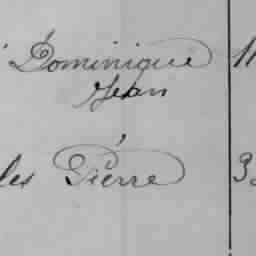 Dominique 11
Jean
les Pierre 3